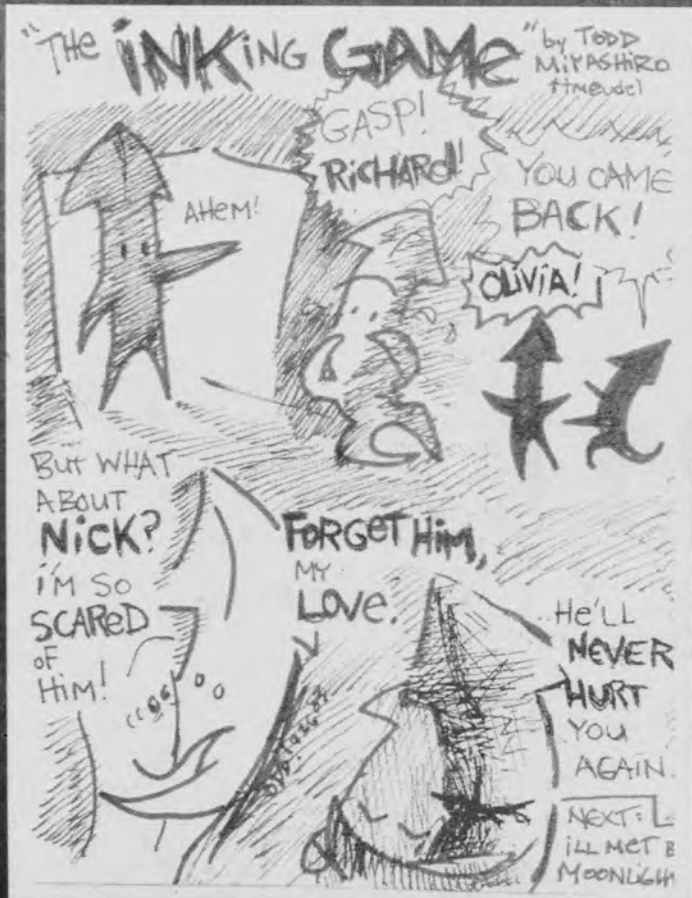 "THE INKING GAME"
by TODD
MIYASHIRO
AHEM!
GASP!
RICHARD!
YOU CAME
BACK!
OLIVIA!
BUT WHAT
ABOUT
NICK?
I'M SO
SCARED
OF
HIM!
FORGET HIM,
MY
LOVE.
HE'LL
NEVER
HURT
YOU
AGAIN.
NEXT:
ILL MET
MOONLIGH